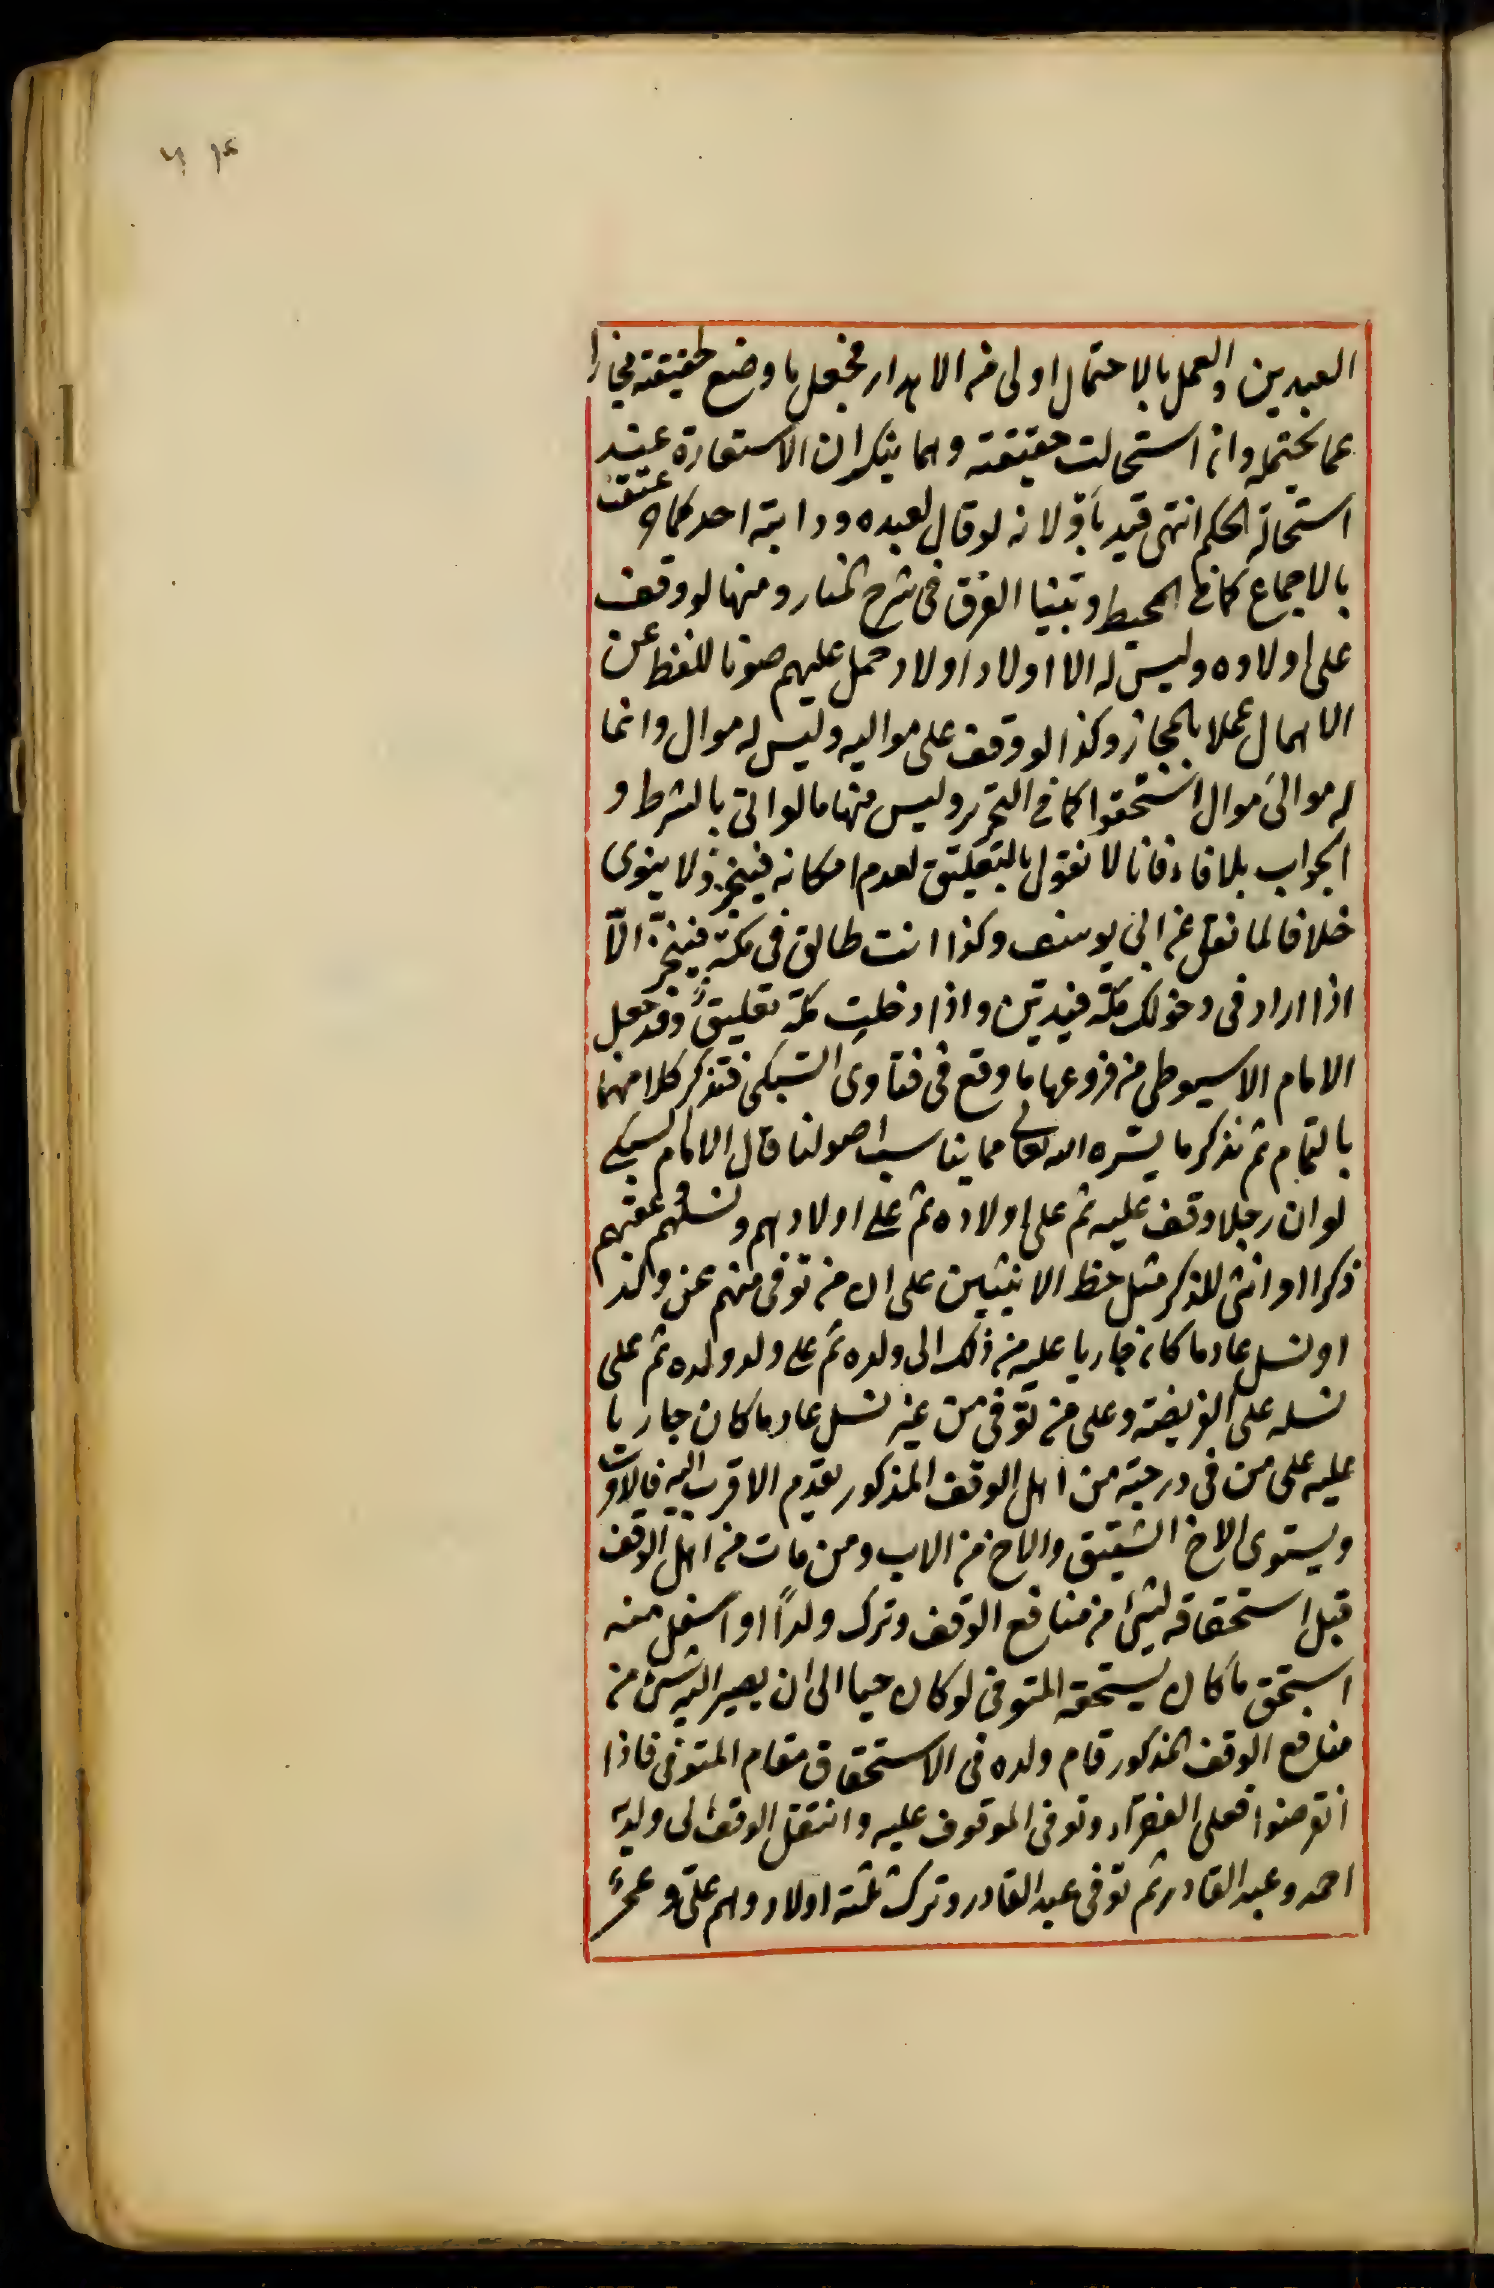 ٦٤
العبدين والعمل بالاحتمال اولى من الاهدار فجعل ما وضع لحقيقته مجازا
عما يحتمله وان استحالت حقيقته وهما ينكران الاستعارة عند
استحالة الحكم انتهى قيد باو لانه لو قال لعبده ودابته احدكما حر عتق
بالاجماع كما في المحيط وبينا الفرق في شرح المنار ومنها لو وقف
على اولاده وليس له الا اولاد اولاد حمل عليهم صونا للفظ عن
الاهمال عملا بالمجاز وكذا لو وقف على مواليه وليس له موال وانما
له موالى موال استحقوا كما في التحرير وليس منها ما لو اتى بالشرط و
الجواب بلا فاء فانا لا نقول بالتعليق لعدم امكانه فيتنجز ولا ينوى
خلافا لما نقل عن ابي يوسف وكذا انت طالق في مكة فيتنجز الّا
اذا اراد في دخولك مكة فيدين واذا دخلت مكة تعليق وقد جعل
الامام الاسيوطي من فروعها ما وقع في فتاوى السبكي فتذكر كلامهما
بالتمام ثم نذكر ما يسّره الله تعالى مما يناسب اصولنا قال الامام السبكي
لو ان رجلا وقف عليه ثم على اولاده ثم على اولادهم ونسلهم وعقبهم
ذكرا او انثى للذكر مثل حظ الانثيين على ان من توفى منهم عن ولد
او نسل عاد ما كان جاريا عليه من ذلك الى ولده ثم على ولد ولده ثم على
نسله على الفريضة وعلى من توفى من غير نسل عاد ما كان جاريا
عليه على من في درجته من اهل الوقف المذكور يقدم الاقرب اليه فالاقرب
ويستوى الاخ الشقيق والاخ من الاب ومن مات من اهل الوقف
قبل استحقاقه لشئ من منافع الوقف وترك ولدًا او اسفل منه
استحق ما كان يستحقه المتوفى لو كان حيا الى ان يصير اليه شئ من
منافع الوقف المذكور قام ولده في الاستحقاق مقام المتوفى فاذا
انقرضوا فعلى الفقراء وتوفى الموقوف عليه وانتقل الوقف الى ولديه
احمد وعبد القادر ثم توفى عبد القادر وترك ثلثة اولاد وهم على وعمرو